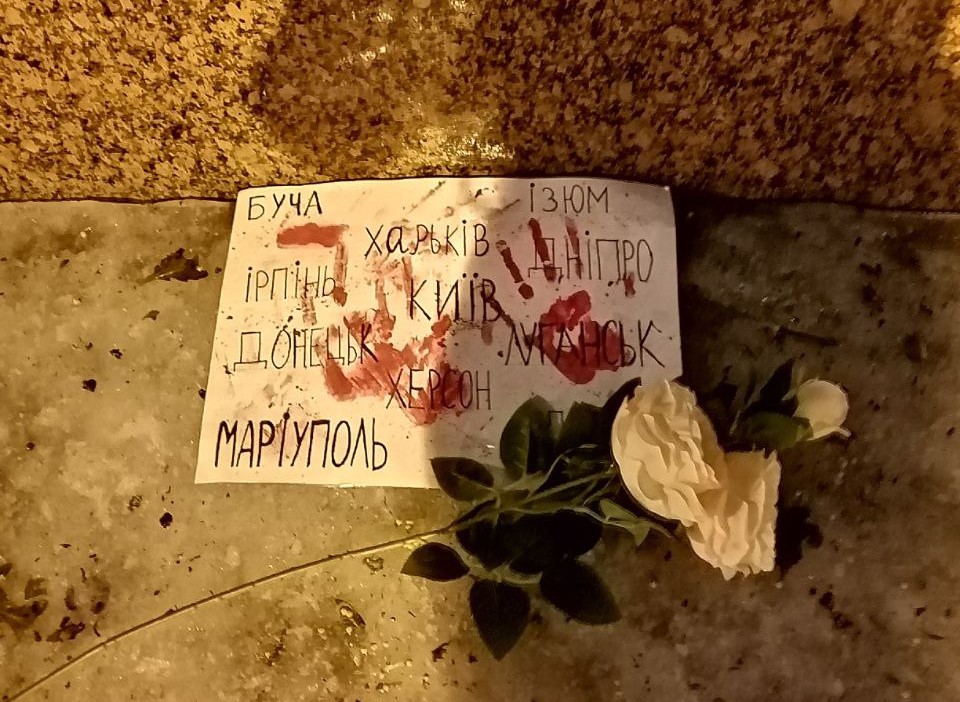 БУЧА ІЗЮМ
ХАРЬКІВ
ДНІПРО
ІРПІНЬ
КИЇВ
ДОНЕЦЬК ЛУГАНСЬК
ХЕРСОН
МАРІУПОЛЬ